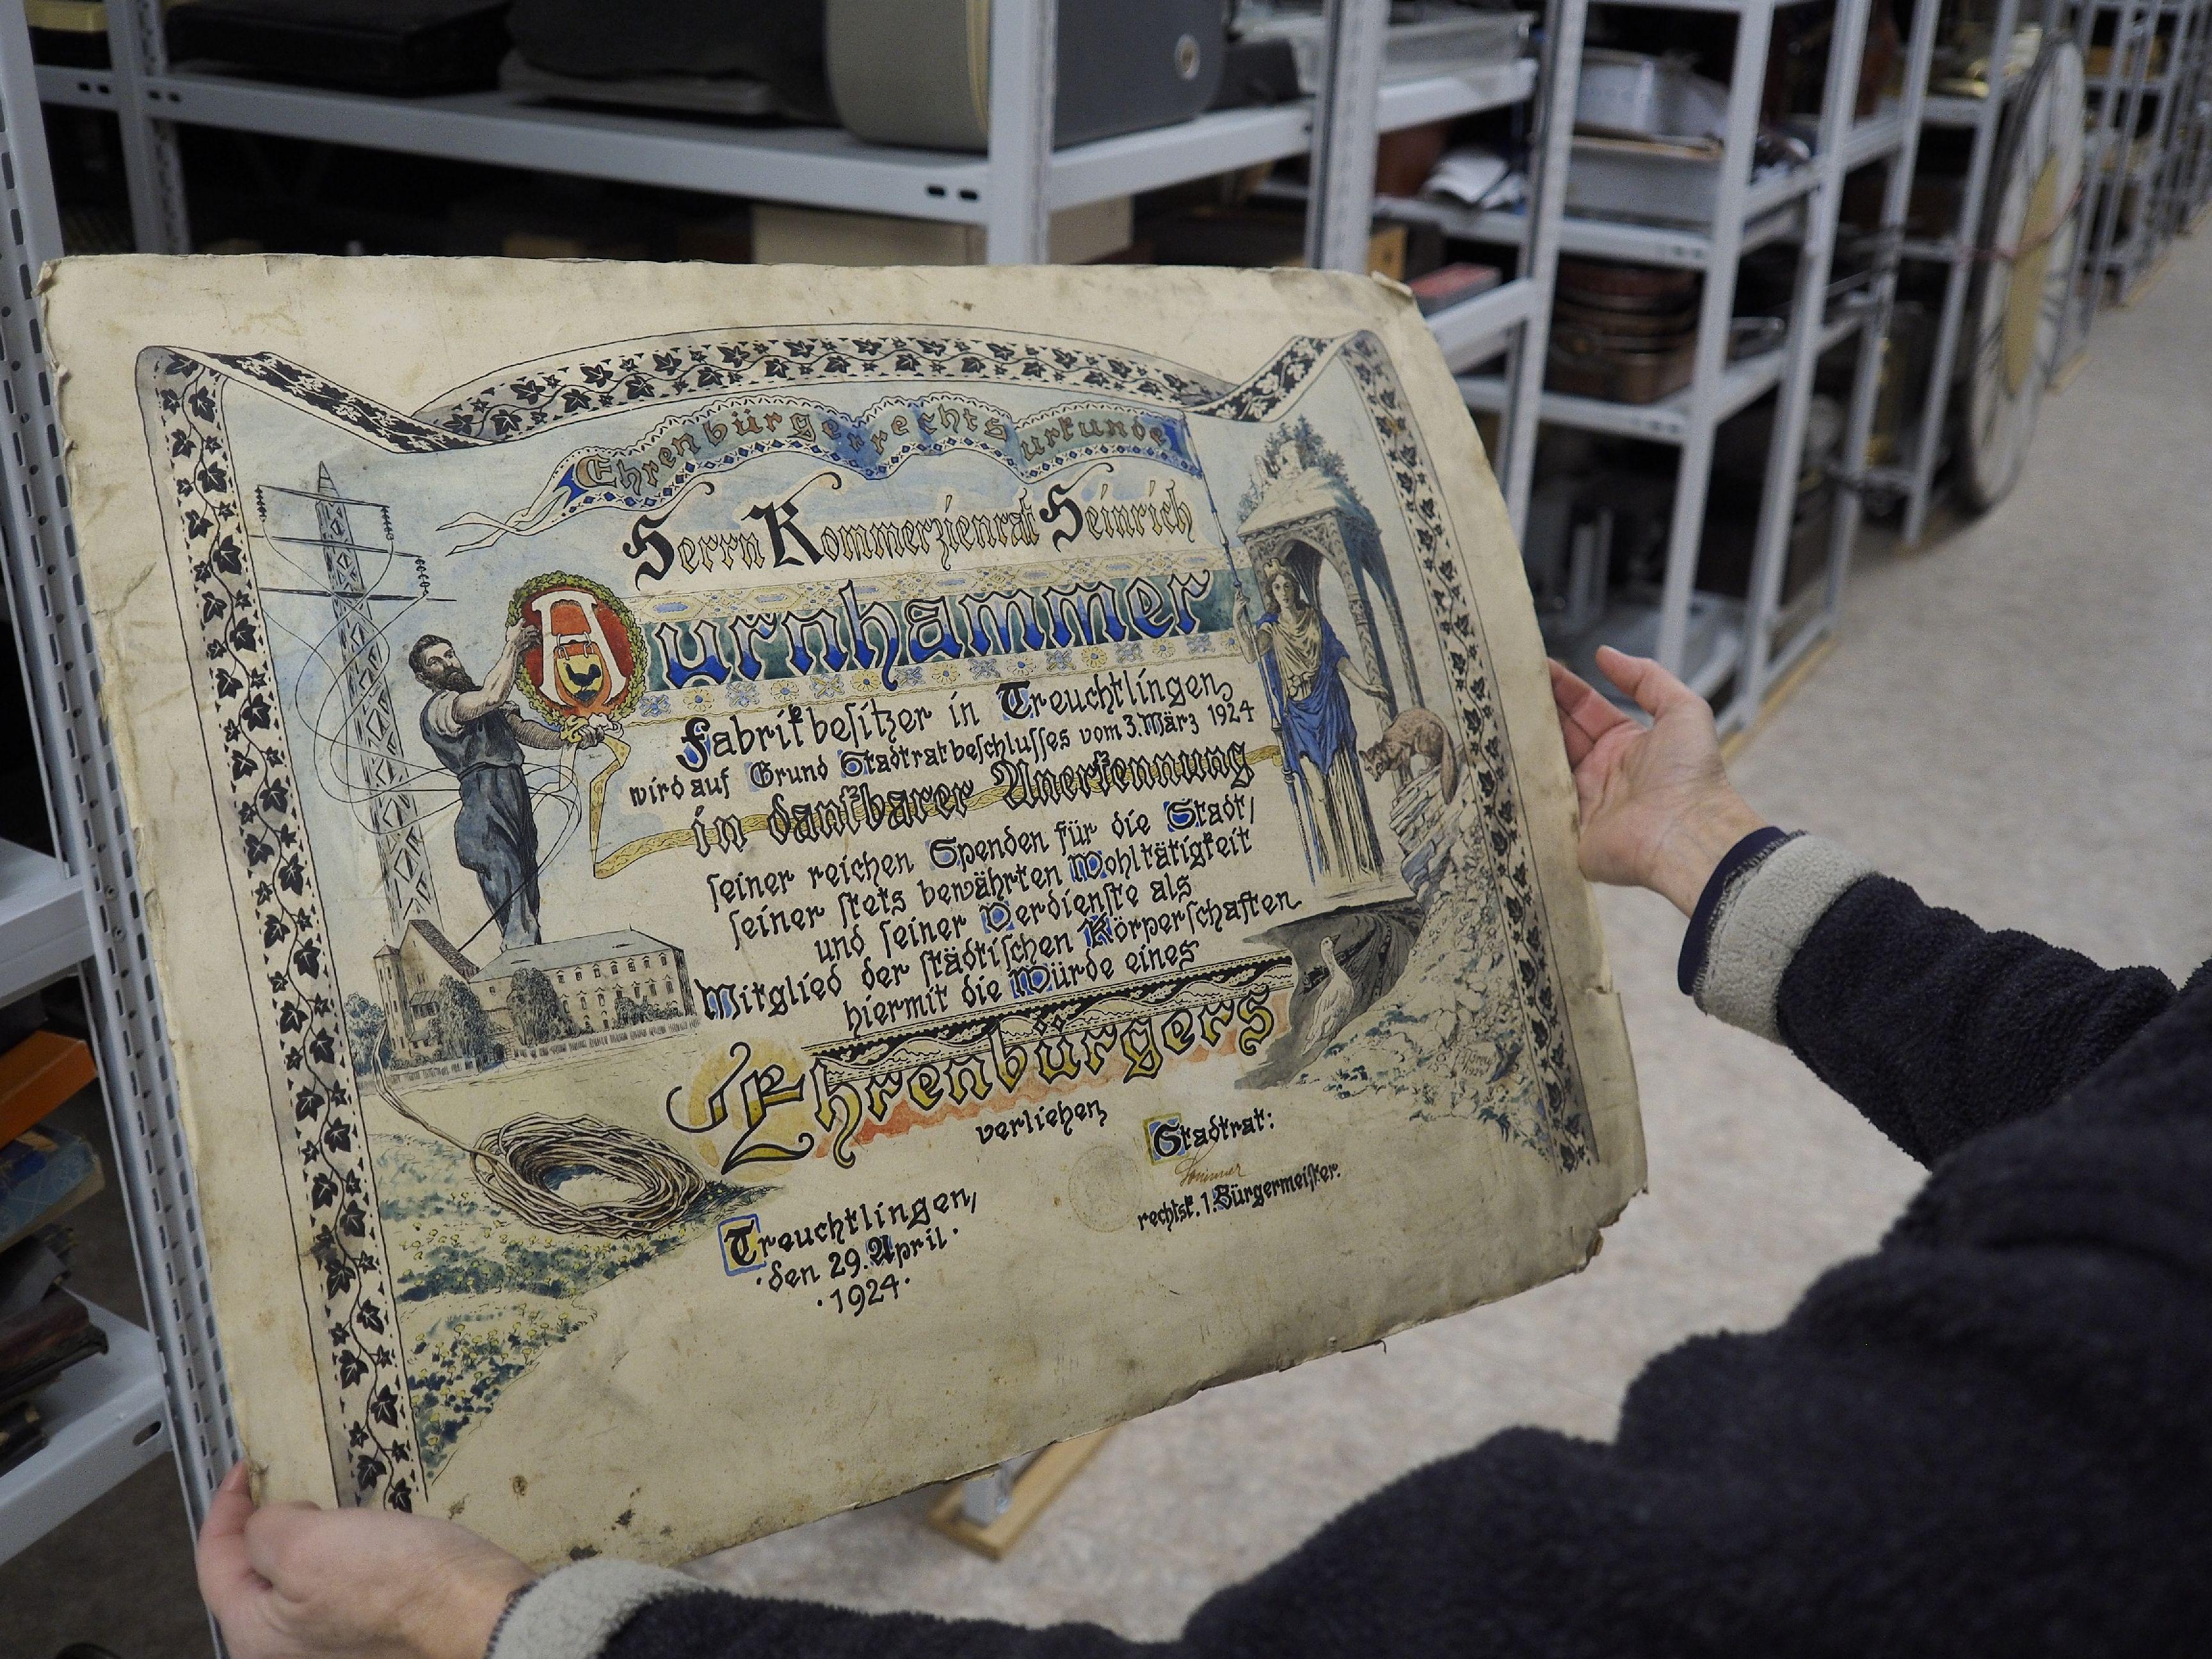 Ehrenbürgerrechtsurkunde
Herrn Kommerzienrat Heinrich
Aurnhammer
Fabrikbesitzer in Treuchtlingen,
wird auf Grund Stadtratbeschlusses vom 3. März 1924
in dankbarer Anerkennung
seiner reichen Spenden für die Stadt,
seiner stets bewährten Wohltätigkeit
und seiner Verdienste als
Mitglied der städtischen Körperschaften
hiermit die Würde eines
Ehrenbürgers
verliehen,
Stadtrat:
rechtsk. 1. Bürgermeister.
Treuchtlingen,
·den 29. April·
·1924·